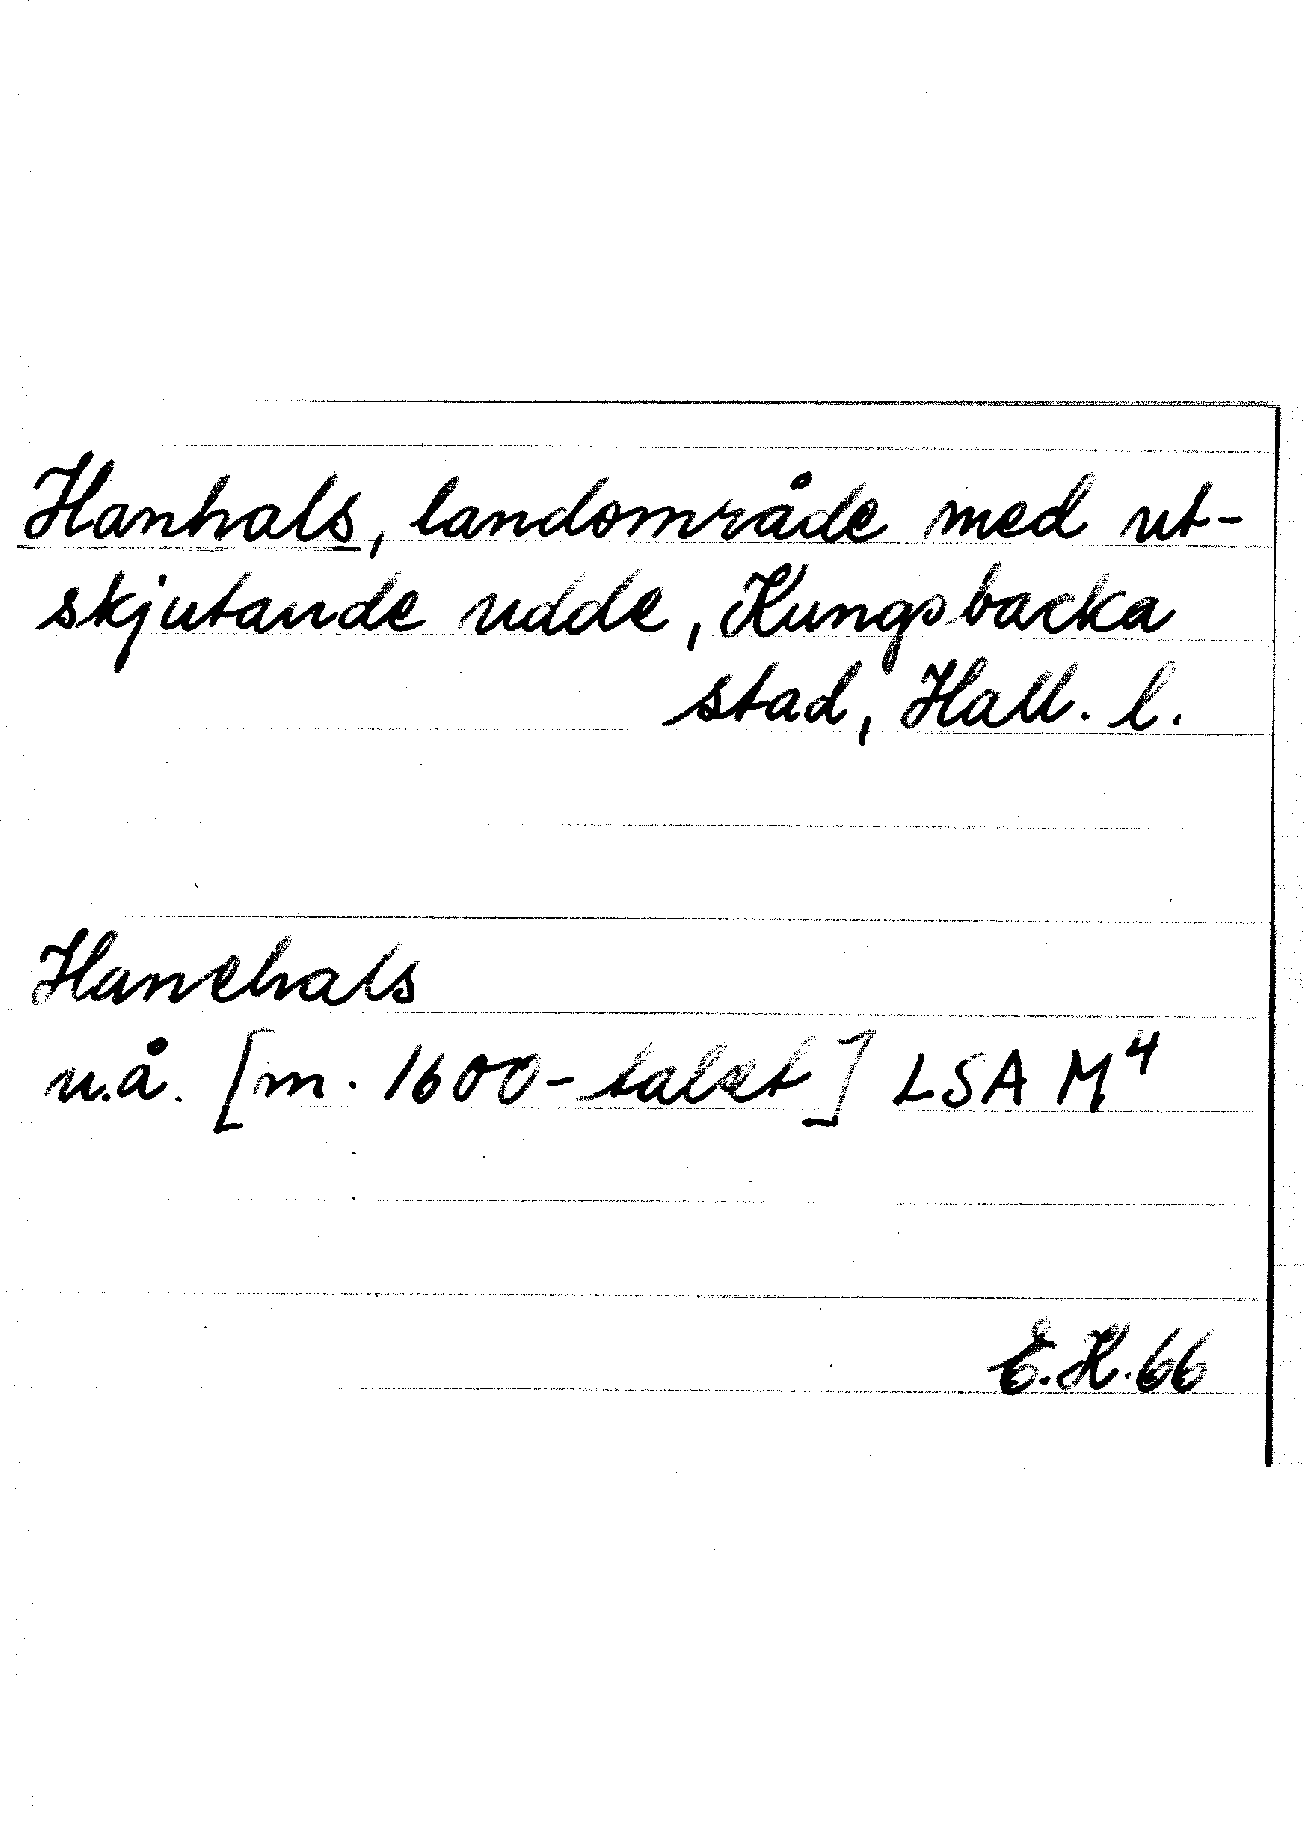 Hanhals, landområde med ut-
skjutande udde, Kungsbacka
stad, Hall. l.
Hanehals
u.å. [m. 1600-talet] LSA M⁴
E.H.66